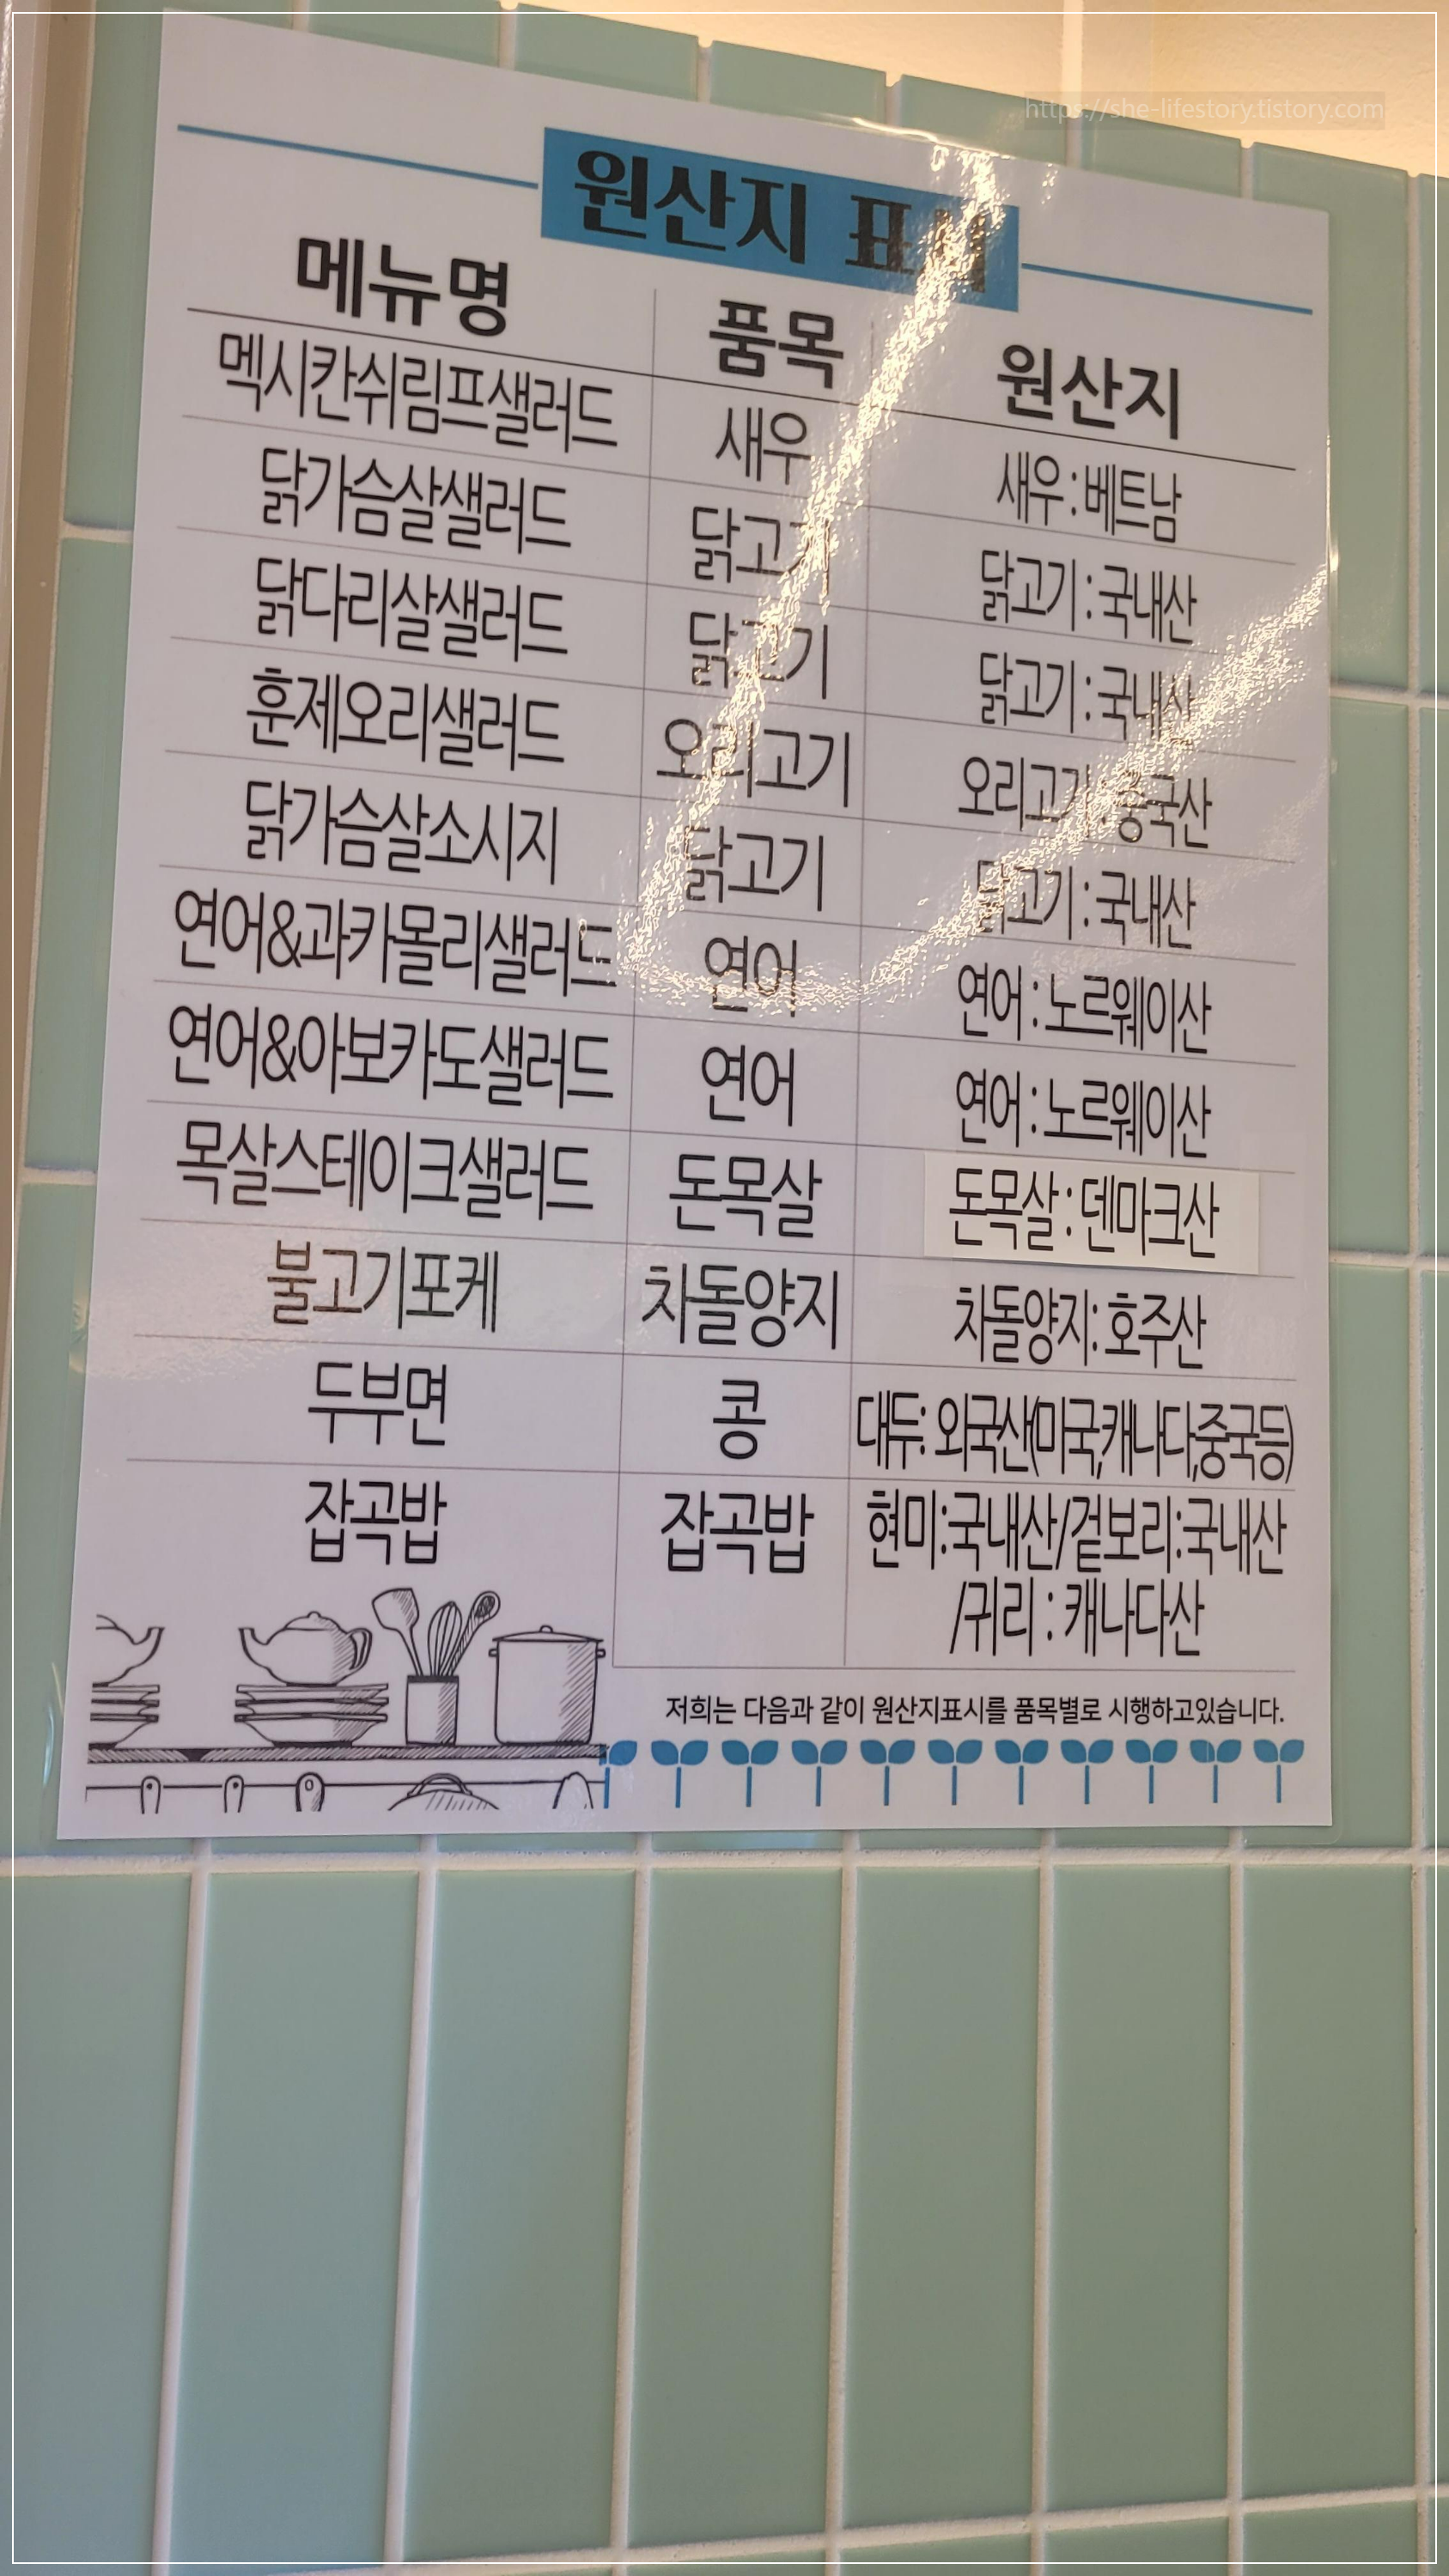 https://she-lifestory.tistory.com
원산지 표시
메뉴명 품목 원산지
멕시칸쉬림프샐러드 새우 새우 : 베트남
닭가슴살샐러드 닭고기 닭고기 : 국내산
닭다리살샐러드 닭고기 닭고기 : 국내산
훈제오리샐러드 오리고기 오리고기 : 중국산
닭가슴살소시지 닭고기 닭고기 : 국내산
연어&과카몰리샐러드 연어 연어 : 노르웨이산
연어&아보카도샐러드 연어 연어 : 노르웨이산
목살스테이크샐러드 돈목살 돈목살 : 덴마크산
불고기포케 차돌양지 차돌양지: 호주산
두부면 콩 대두: 외국산(미국,캐나다,중국등)
잡곡밥 잡곡밥 현미:국내산/겉보리:국내산
/귀리 : 캐나다산
저희는 다음과 같이 원산지표시를 품목별로 시행하고있습니다.